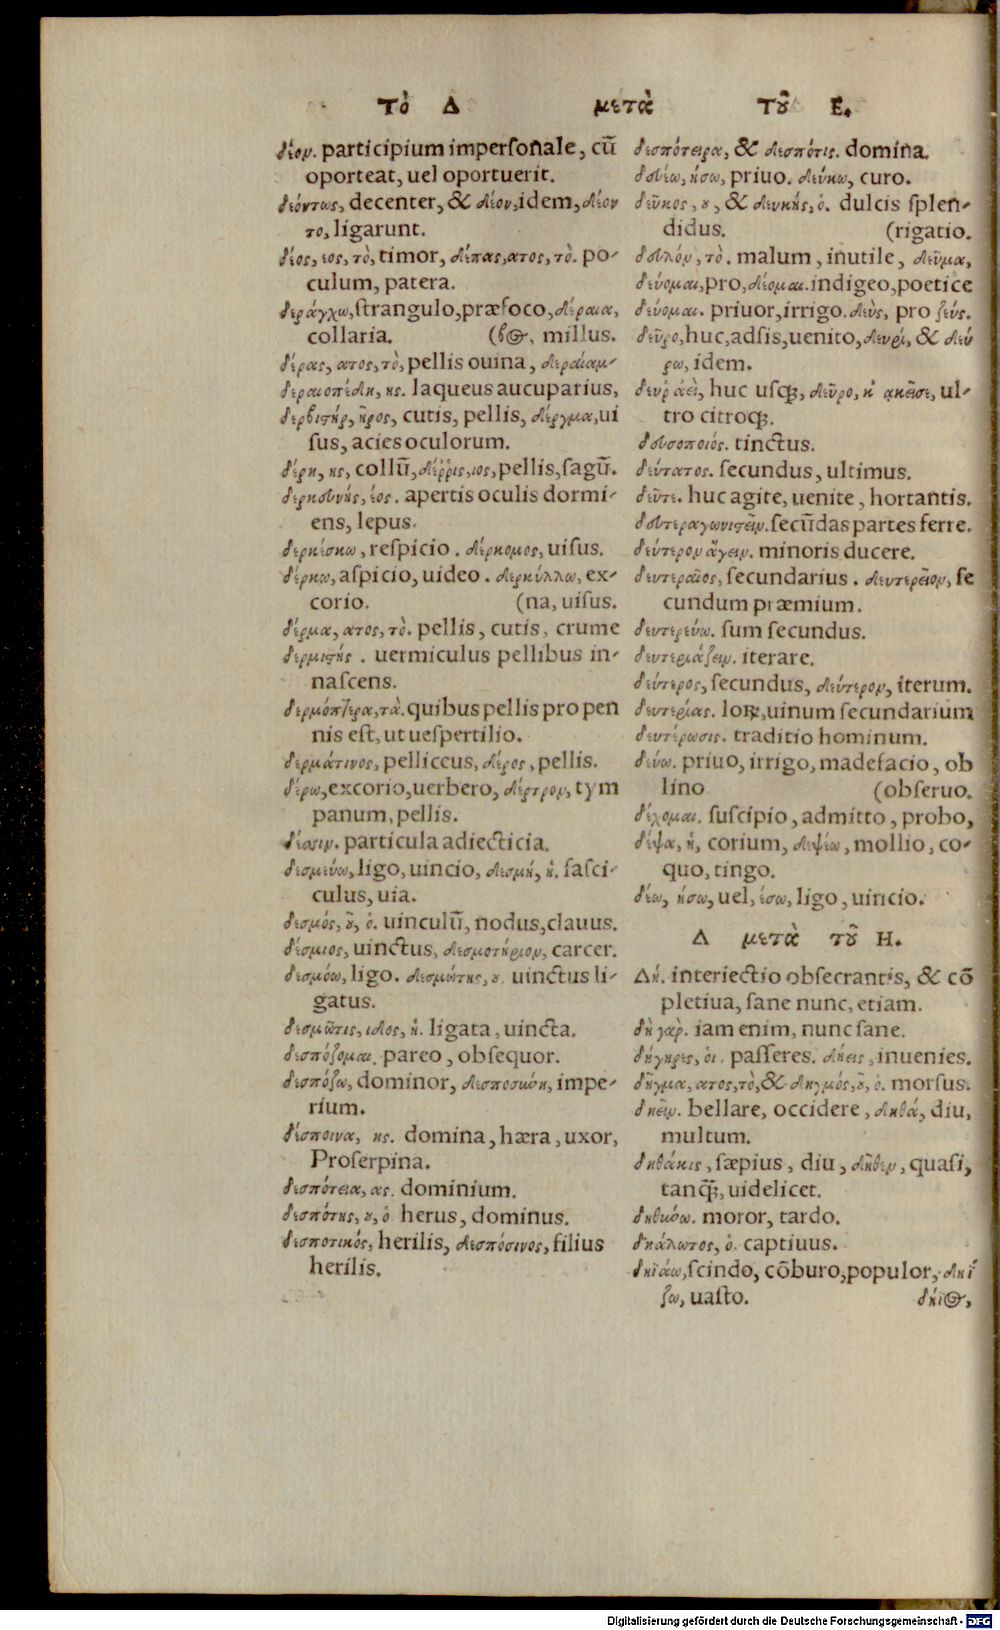 τὸ Δ μετὰ τοῦ Ε.
δέον. participium imperſonale, cū
oporteat, uel oportuerit.
δεόντως, decenter, & δέον, idem, δέον
το, ligarunt.
δέος, εος, τὸ, timor, δέπας, ατος, τὸ. po-
culum, patera.
δεράγχω, ſtrangulo, præfoco, δέραια,
collaria. (βος, millus.
δέρας, ατος, τὸ, pellis ouina, δεραίαμ-
δεραιοπέδη, ης. laqueus aucuparius,
δερβιστήρ, ῆρος, cutis, pellis, δέργμα, ui
ſus, acies oculorum.
δέρη, ης, collū, δέῤῥις, ιος, pellis, ſagū.
δερκευνής, έος. apertis oculis dormi-
ens, lepus.
δερκέσκω, reſpicio. δέρκομος, uiſus.
δέρκω, aſpicio, uideo. δερκύλλω, ex-
corio. (na, uiſus.
δέρμα, ατος, τὸ. pellis, cutis, crume
δερμιστής. uermiculus pellibus in-
naſcens.
δερμόπτερα, τὰ. quibus pellis pro pen
nis eſt, ut ueſpertilio.
δερμάτινος, pelliceus, δέρος, pellis.
δέρω, excorio, uerbero, δέρτρον, tym
panum, pellis.
particula adiecticia.
δεσμεύω, ligo, uincio, δεσμή, ἡ. faſci-
culus, uia.
δεσμός, οῦ, ὁ. uinculū, nodus, clauus.
δέσμιος, uinctus, δεσμοτήριον, carcer.
δεσμόω, ligo. δεσμώτης, ου. uinctus li-
gatus.
δεσμῶτις, ιδος, ἡ. ligata, uincta.
δεσπόζομαι. pareo, obſequor.
δεσπόζω, dominor, δεσποσύνη, impe-
rium.
δέσποινα, ης. domina, hæra, uxor,
Proſerpina.
δεσπότεια, ας. dominium.
δεσπότης, ου, ὁ herus, dominus.
δεσποτικός, herilis, δεσπόσινος, filius
herilis.
δεσπότειρα, & δεσπότις. domina.
δευέω, ήσω, priuo. δεύκω, curo.
δεῦκος, ου, & δευκής, ὁ. dulcis ſplen-
didus. (rigatio.
δευλόν, τὸ. malum, inutile, δεῦμα,
δεύομαι, pro, δέομαι. indigeo, poetice
δεύομαι. priuor, irrigo. δεὺς, pro ζεύς.
δεῦρο, huc, adſis, uenito, δευρὶ, & δεύ
ρω, idem.
δεῦρ ἀεὶ, huc uſq;, δεῦρο, κ᾽ ἀκεῖσε, ul-
tro citroq;.
δευσοποιός. tinctus.
δεύτατος. ſecundus, ultimus.
δεῦτε. huc agite, uenite, hortantis.
δευτεραγωνιστεῖν. ſecūdas partes ferre.
δεύτερον ἄγειν. minoris ducere.
δευτεραῖος, ſecundarius. δευτερεῖον, ſe
cundum præmium.
δευτερεύω. ſum ſecundus.
δευτεριάζειν. iterare.
δεύτερος, ſecundus, δεύτερον, iterum.
δευτερίας. loꝝ, uinum ſecundarium
δευτέρωσις. traditio hominum.
δεύω. priuo, irrigo, madefacio, ob
lino (obſeruo.
δέχομαι. ſuſcipio, admitto, probo,
δέψα, ἡ, corium, δεψέω, mollio, co-
quo, tingo.
δέω, ήσω, uel, έσω, ligo, uincio.
Δ μετὰ τοῦ Η.
Δή. interiectio obſecrantis, & cō
pletiua, ſane nunc, etiam.
δὴ γάρ. iam enim, nunc ſane.
δήγηρες, οἱ. paſſeres. δήεις, inuenies.
δῆγμα, ατος, τὸ, & δηγμός, οῦ, ὁ. morſus.
δηεῖν. bellare, occidere, δηθά, diu,
multum.
δηθάκις, ſæpius, diu, δῆθεν, quaſi,
tanq̄;, uidelicet.
δηθύνω. moror, tardo.
δηάλωτος, ὁ. captiuus.
δηϊάω, ſcindo, cōburo, populor, δηΐ
ζω, uaſto. δήϊος,
Digitalisierung gefördert durch die Deutsche Forschungsgemeinschaft - DFG